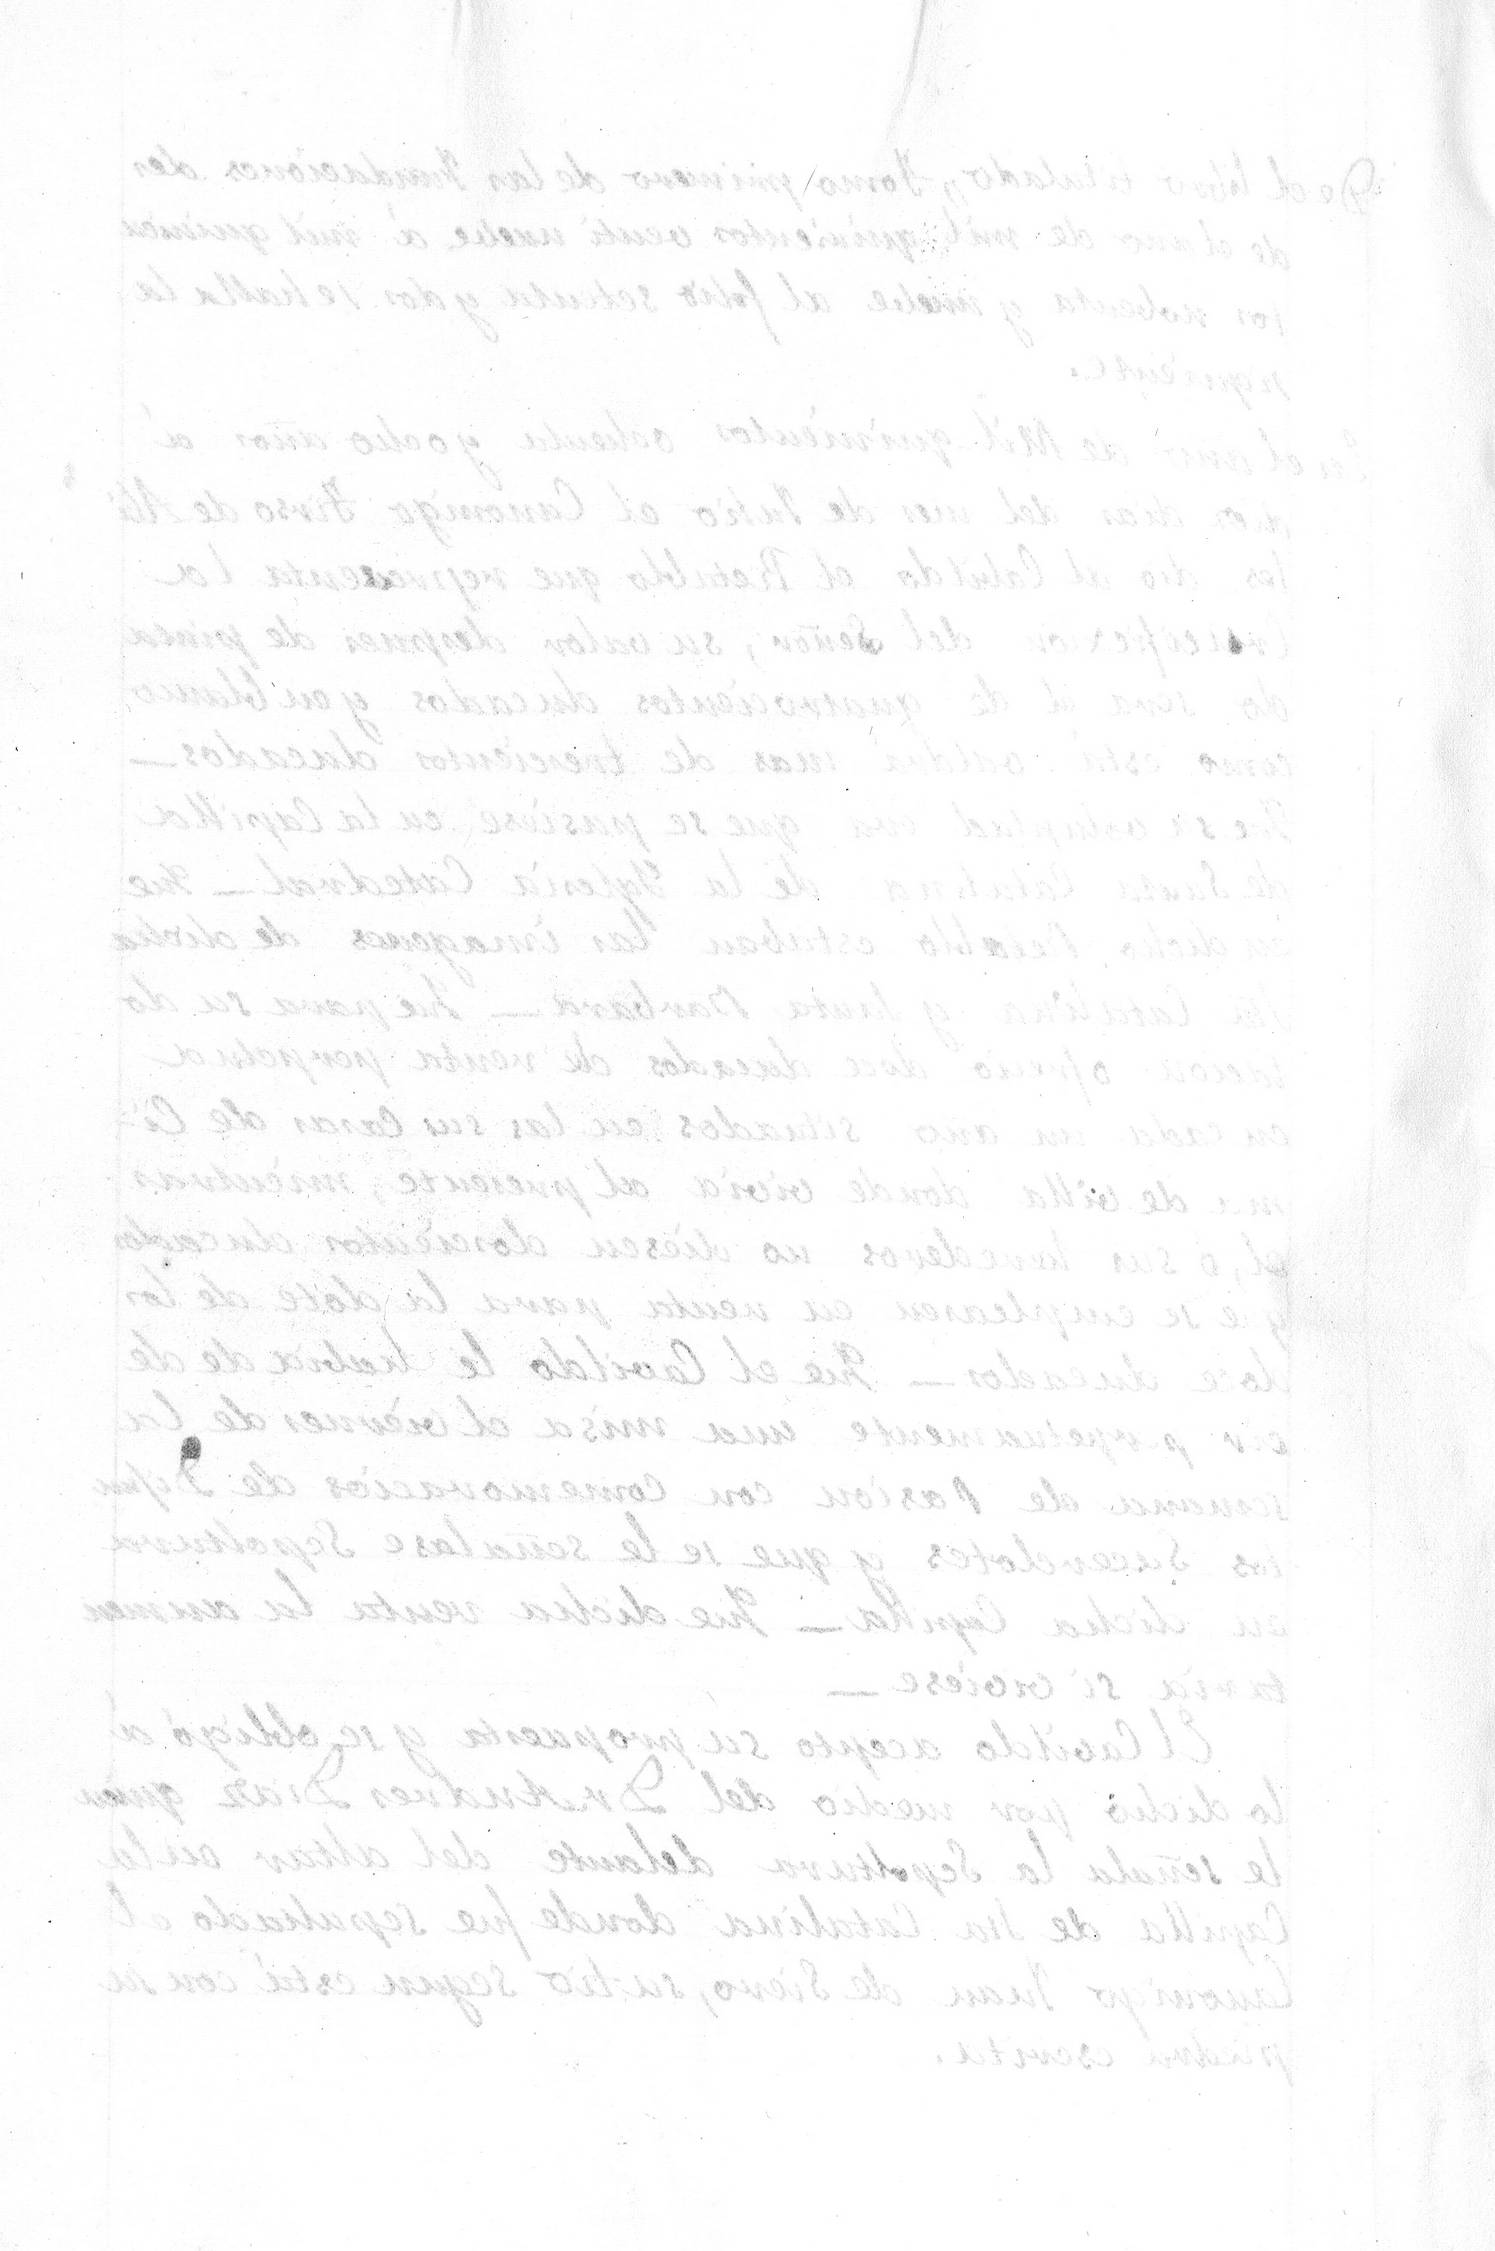 De el libro titulado, Tomo primero de las Fundaciones des
de el ano de mil quinientos venti nuebe á mil quinien
tos nobenta y nuebe al folio setenta y dos se halla la
siguiente.
En el año de Mil quinientos ochenta y ocho años á
dias del mes de Julio el Canonigo Tirso de Abi
les dio al Cabildo el Retablo que representa la
Crucifixion del Señor, su valor despues de pinta
do sera el de quatrocientos ducados y en blanco,
como está valdra mas de trecientos ducados —
Que su voluntad era que se pusiese en la Capilla
de Santa Catalina de la Yglesia Catedral — Que
en dicho Retablo estaban las imagenes de dicha
Sta Catalina y Santa Barbara — Que para su do
tacion ofrecio doce ducados de renta perpetua
en cada un ano situados en las sus casas de Ci-
ma de villa donde vivia al presente, mientras
el, ó sus herederos no diesen doscientos ducados
que se empleasen en renta para la dote de los
doce ducados — Que el Cavildo le habia de de
cir perpetuamente una misa el viernes de la
semana de Pasion con comemoracios de Difun
tos Sacerdotes y que se le señalase Sepoltura
en dicha Capilla — Que dicha renta la aumen
taria si vviese —
El Cavildo acepto su propuesta y se obligó á
lo dicho por medio del Dr. Andres Diaz quien
le señala la Sepoltura delante del altar en la
Capilla de Sta Catalina donde fue sepultado el
Canonigo Juan de Siero, su tio segun está con su
piedra escrita.